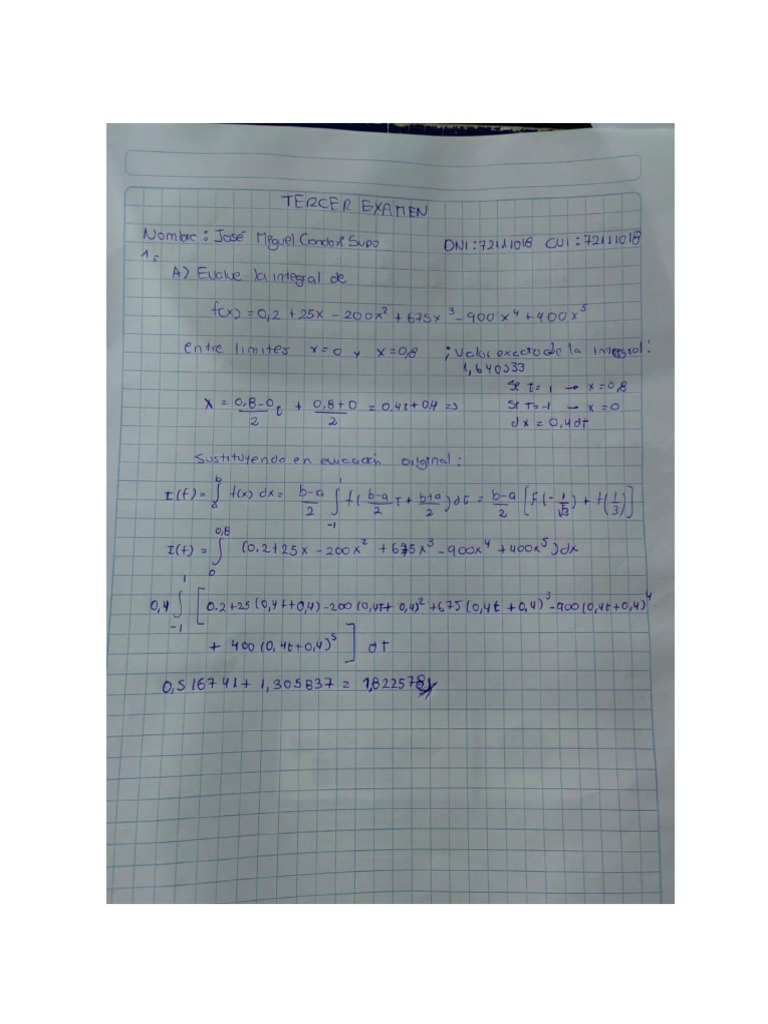 TERCER EXAMEN
Nombre: José Miguel Condori Supo DNI: 72111018 CUI: 72111018
1.
A) Evalue la integral de
f(x) = 0,2 + 25x - 200x² + 675x³ - 900x⁴ + 400x⁵
entre limites x=0 y x=0,8 ; Valor exacto de la integral:
1,640533
Si t=1 → x=0,8
x = (0,8-0)/2 t + (0,8+0)/2 = 0,4t+0,4 => Si T=-1 → x=0
dx = 0,4dt
Sustituyendo en ecuación original:
I(f) = ∫₀ᵇ f(x) dx = (b-a)/2 ∫₋₁¹ f((b-a)/2 T + (b+a)/2) dt = (b-a)/2 [f(-1/√3) + f(1/3)]
I(f) = ∫₀^0,8 (0.2+25x-200x²+675x³-900x⁴+400x⁵)dx
0,4 ∫₋₁¹ [0.2+25(0,4t+0,4)-200(0,4t+0,4)²+675(0,4t+0,4)³-900(0,4t+0,4)⁴
+ 400(0,4t+0,4)⁵] dt
0,516741 + 1,305837 = 1,822578